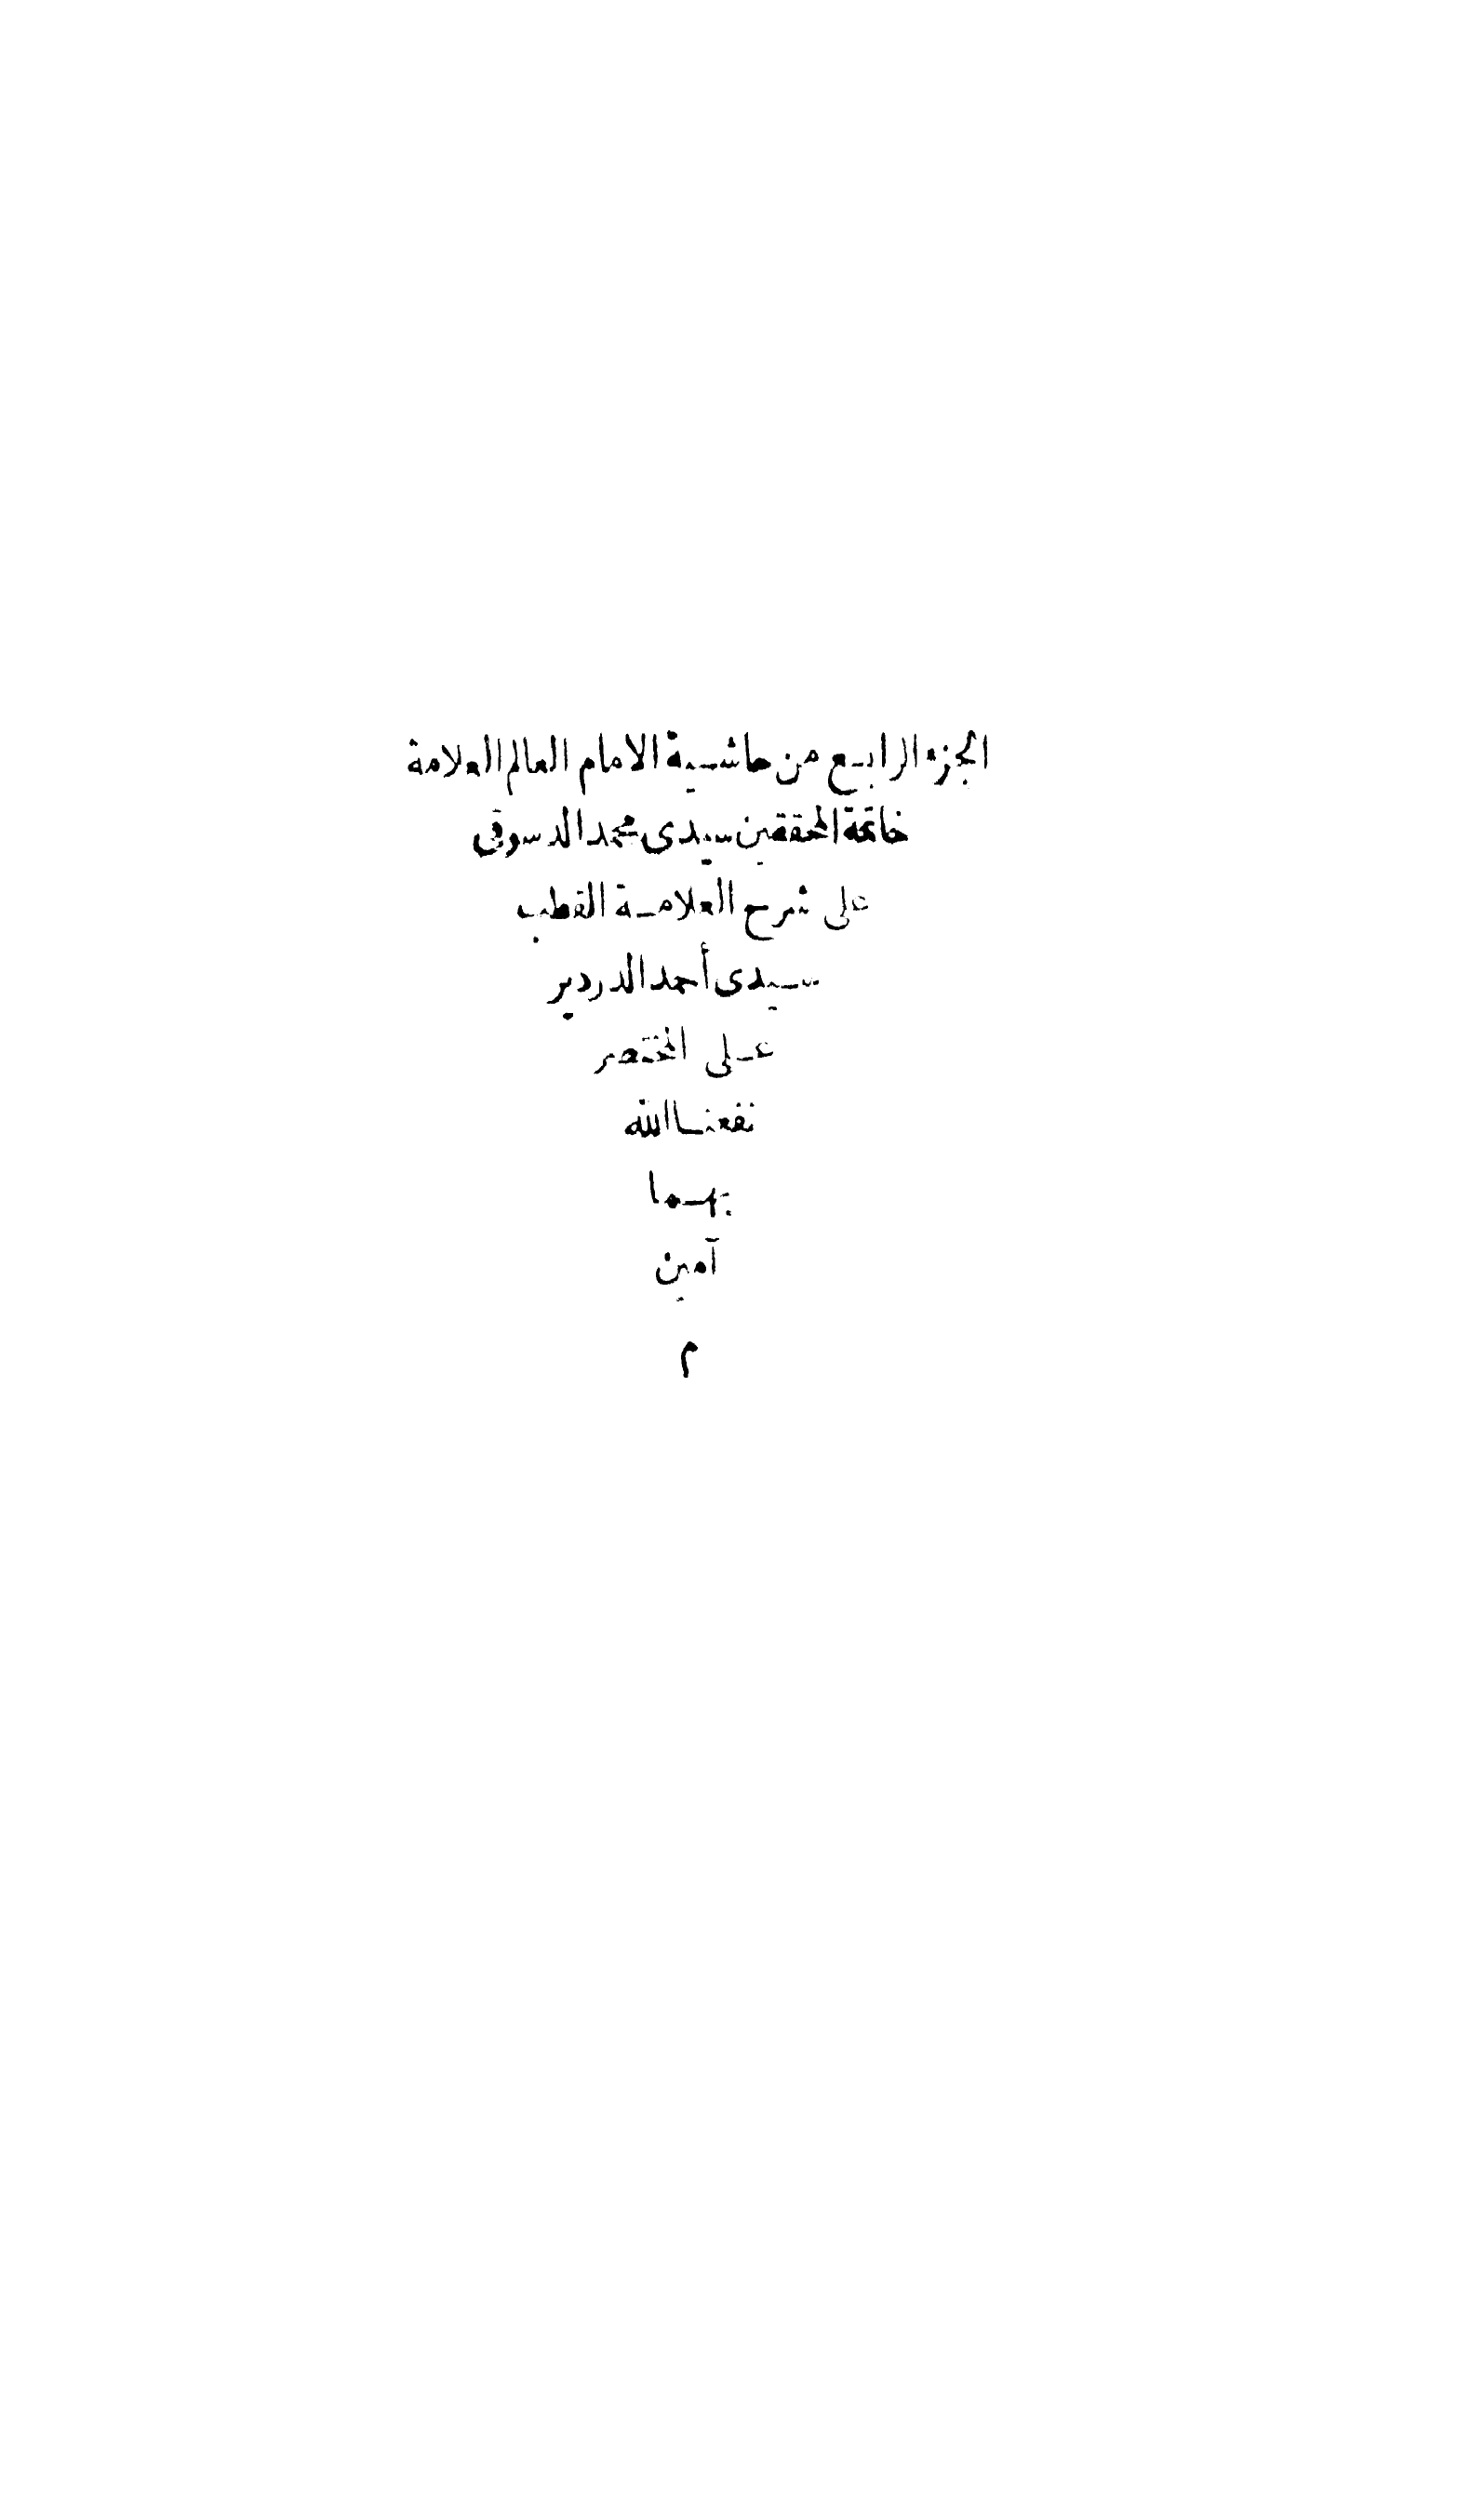 الجزء الرابع من حاشية الامام العالم العلامة
خاتمة المحققين سيدى محمد الدسوقى
على شرح العلامة القطب
سيدى أحمد الدردير
على المختصر
نفعنا الله
بهما
آمين
م